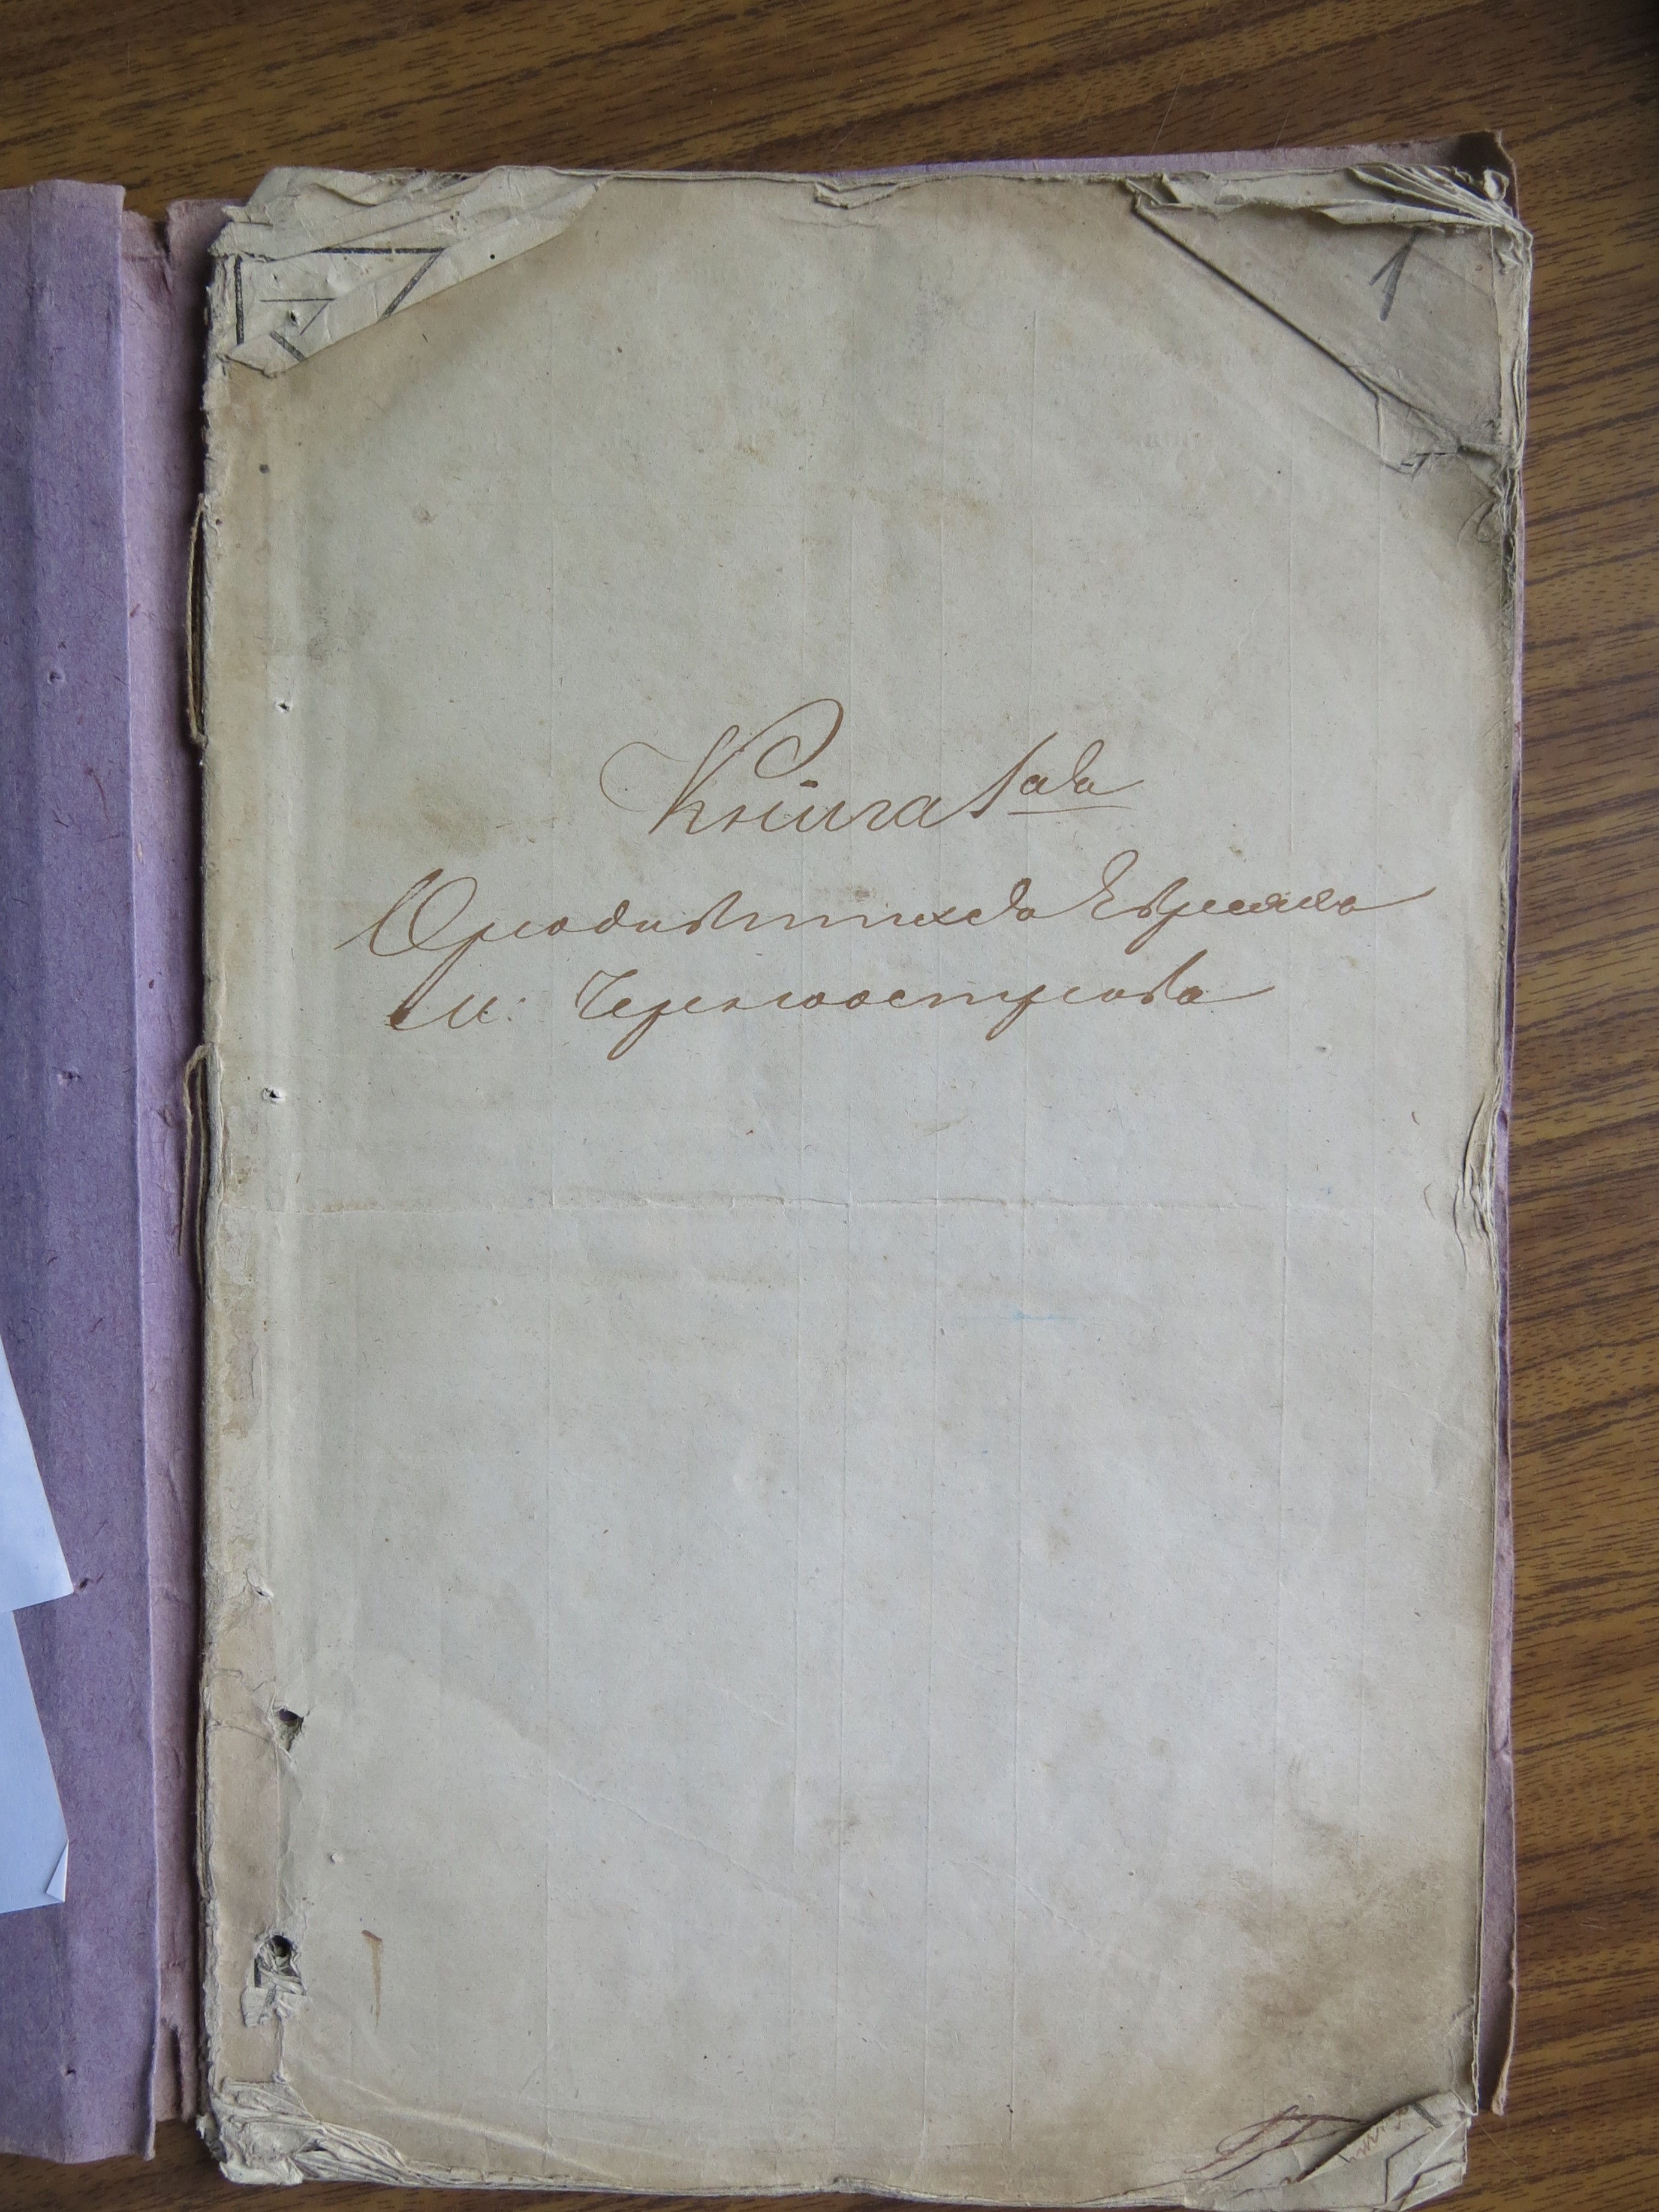 1
Книга 1ая
О родившихся Евреяхъ
м: Черноострова